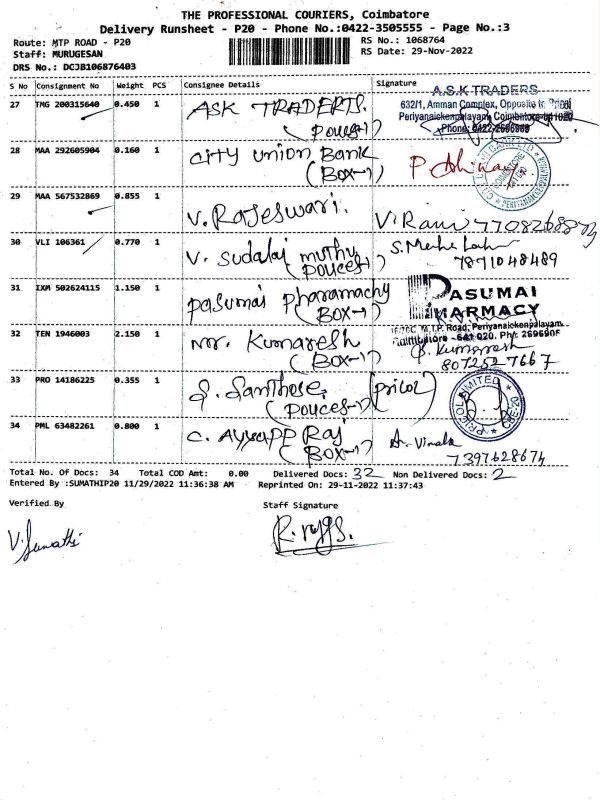 THE PROFESSIONAL COURIERS, Coimbatore
Delivery Runsheet - P20 - Phone No.:0422-3505555 - Page No.:3
Route: MTP ROAD - P20
RS No.: 1068764
Staff: MURUGESAN
RS Date: 29-Nov-2022
DRS No.: DCJB106876403
S No Consignment No Weight PCS Consignee Details Signature
A.S.K TRADERS
27 TMG 200315640 0.450 1 ASK TRADERTS.
(Pouces-1)
632/1, Amman Complex, Opposite to Pricol
Periyanaickenpalayam, Coimbatore-641020
Phone: 0422-2696969
28 MAA 292605904 0.160 1 city union Bank
(Box-1)
29 MAA 567532869 0.855 1 V. Rajeswari.
V. Rani
30 VLI 106361 0.770 1 V. Sudalai muthu
(Pouces-1)
7871048489
31 IXM 502624115 1.150 1 pasumai pharamachy
(Box-1)
PASUMAI
PHARMACY
M.T.P. Road, Periyanaickenpalayam,
32 TEN 1946003 2.150 1 mr. Kumaresh
(Box-1)
S. Kumaresh
8072527667
33 PRO 14186225 0.355 1 S. Santhose (pricol)
(Pouces-1)
PRICOL LIMITED
34 PML 63482261 0.800 1 C. Ayyapp Raj
(Box-1)
7397628674
Total No. Of Docs: 34 Total COD Amt: 0.00 Delivered Docs: 32 Non Delivered Docs: 2
Entered By :SUMATHIP20 11/29/2022 11:36:38 AM Reprinted On: 29-11-2022 11:37:43
Verified By
Staff Signature
V. Sumathi